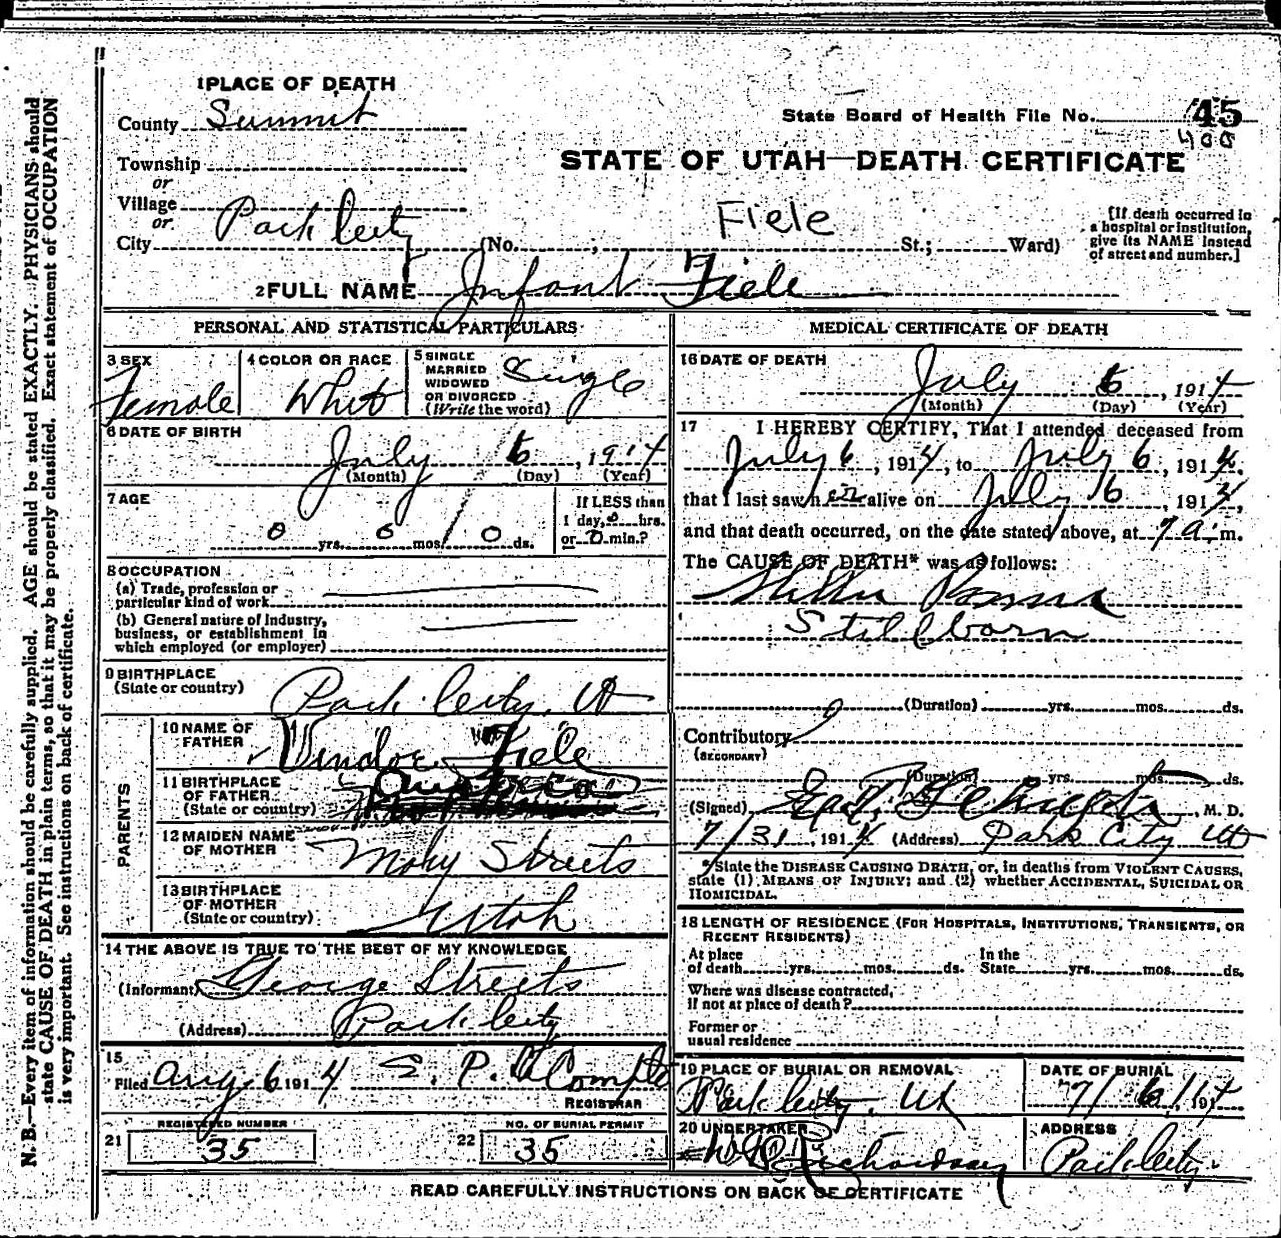 1 PLACE OF DEATH
County Summit
State Board of Health File No. 45
408
STATE OF UTAH—DEATH CERTIFICATE
Township
or
Village
or
City Park City (No. , Fiele St.; Ward)
[If death occurred in a hospital or institution, give its NAME instead of street and number.]
2 FULL NAME Infant Fiele
PERSONAL AND STATISTICAL PARTICULARS
3 SEX
Female
4 COLOR OR RACE
Whit
5 SINGLE MARRIED WIDOWED OR DIVORCED (Write the word)
Single
6 DATE OF BIRTH
July 6, 1914
(Month) (Day) (Year)
7 AGE
0 yrs. 0 mos. 0 ds.
If LESS than 1 day, 0 hrs. or 0 min.?
8 OCCUPATION
(a) Trade, profession or particular kind of work
(b) General nature of Industry, business, or establishment in which employed (or employer)
9 BIRTHPLACE
(State or country) Park City, Ut
PARENTS
10 NAME OF FATHER Fiele
11 BIRTHPLACE OF FATHER (State or country)
12 MAIDEN NAME OF MOTHER Streets
13 BIRTHPLACE OF MOTHER (State or country) Utah
14 THE ABOVE IS TRUE TO THE BEST OF MY KNOWLEDGE
(Informant) George Streets
(Address) Park City
15
Filed Aug 6 1914 E. P.
REGISTRAR
REGISTERED NUMBER
21 35
NO. OF BURIAL PERMIT
22 35
MEDICAL CERTIFICATE OF DEATH
16 DATE OF DEATH
July 6, 1914
(Month) (Day) (Year)
17 I HEREBY CERTIFY, That I attended deceased from
July 6, 1914, to July 6, 1914,
that I last saw h er alive on July 6, 1914,
and that death occurred, on the date stated above, at 7 a. m.
The CAUSE OF DEATH* was as follows:
Stillborn
(Duration) yrs. mos. ds.
Contributory
(SECONDARY)
(Duration) yrs. mos. ds.
(Signed) , M. D.
7/31, 1914 (Address) Park City Ut
*State the DISEASE CAUSING DEATH, or, in deaths from VIOLENT CAUSES, state (1) MEANS OF INJURY; and (2) whether ACCIDENTAL, SUICIDAL OR HOMICIDAL.
18 LENGTH OF RESIDENCE (FOR HOSPITALS, INSTITUTIONS, TRANSIENTS, OR RECENT RESIDENTS)
At place of death yrs. mos. ds. In the State yrs. mos. ds.
Where was disease contracted, if not at place of death?
Former or usual residence
19 PLACE OF BURIAL OR REMOVAL
Park City, Ut
DATE OF BURIAL
7/6/1914
20 UNDERTAKER
ADDRESS
Park City
READ CAREFULLY INSTRUCTIONS ON BACK OF CERTIFICATE
N. B.—Every item of information should be carefully supplied. AGE should be stated EXACTLY. PHYSICIANS should
state CAUSE OF DEATH in plain terms, so that it may be properly classified. Exact statement of OCCUPATION
is very important. See instructions on back of certificate.